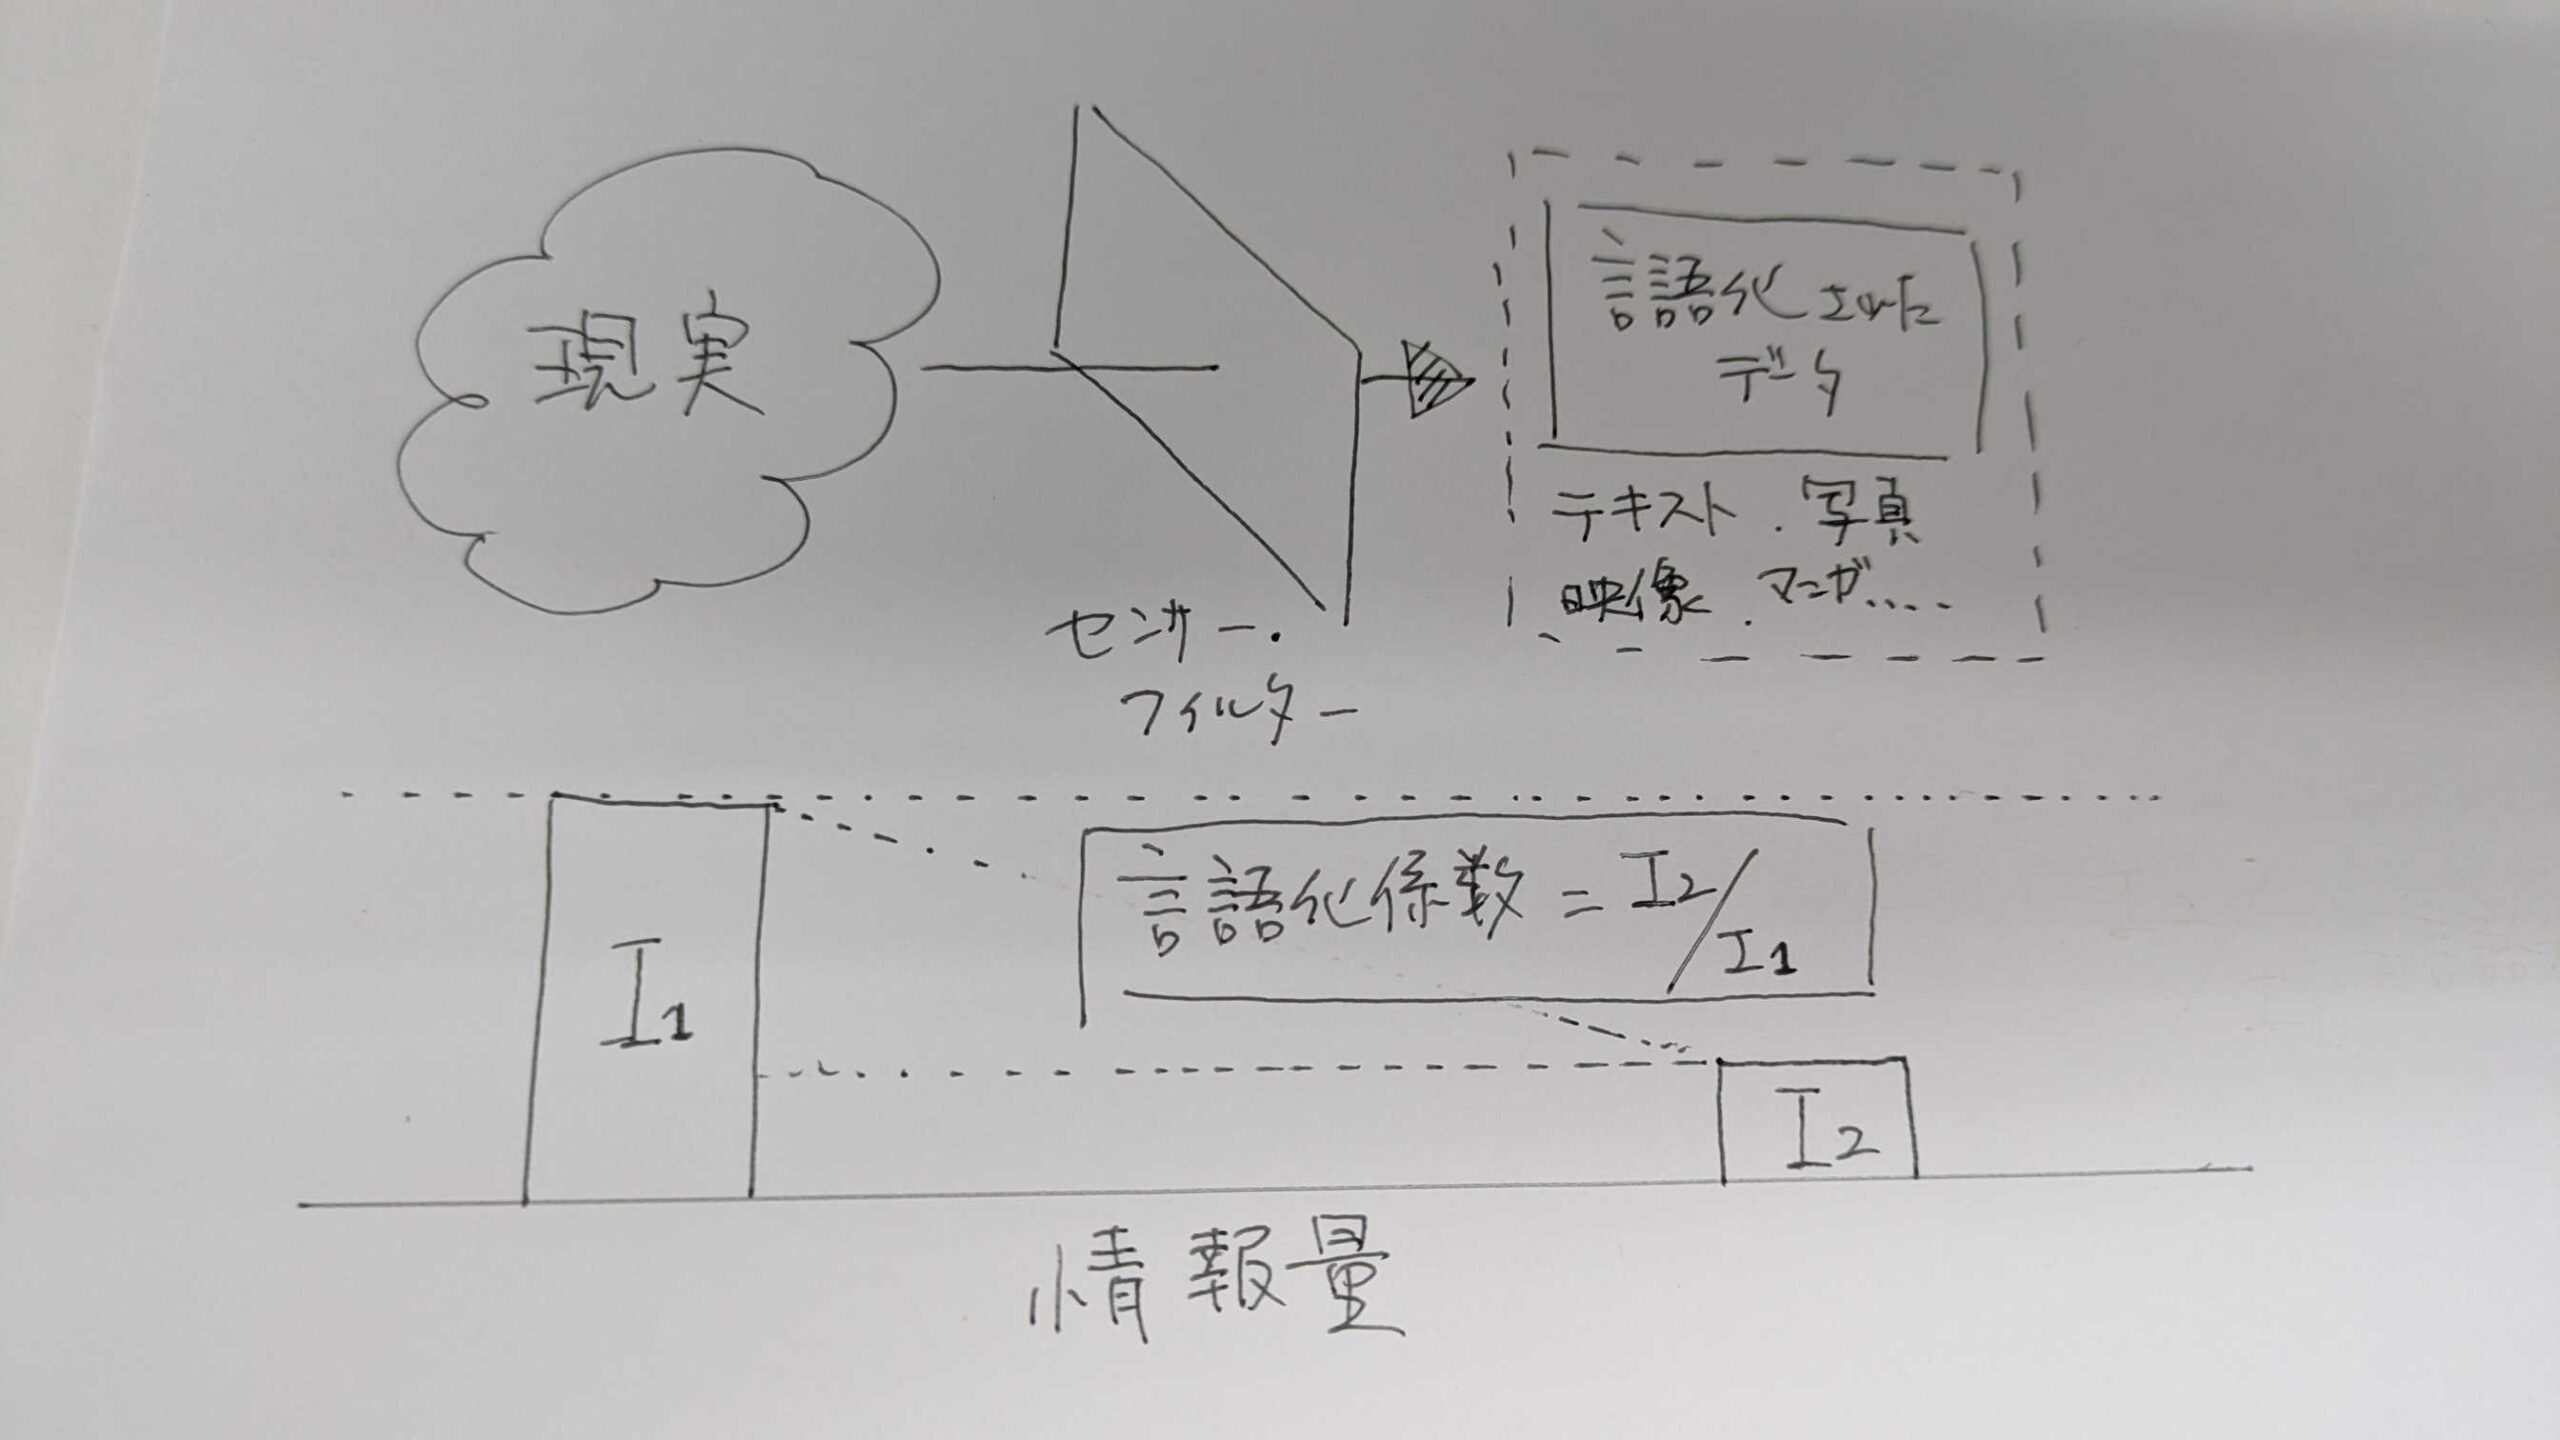 現実
センサー・
フィルター
言語化された
データ
テキスト・写真
映像・マンガ....
言語化係数 = I2/I1
I1
I2
情報量